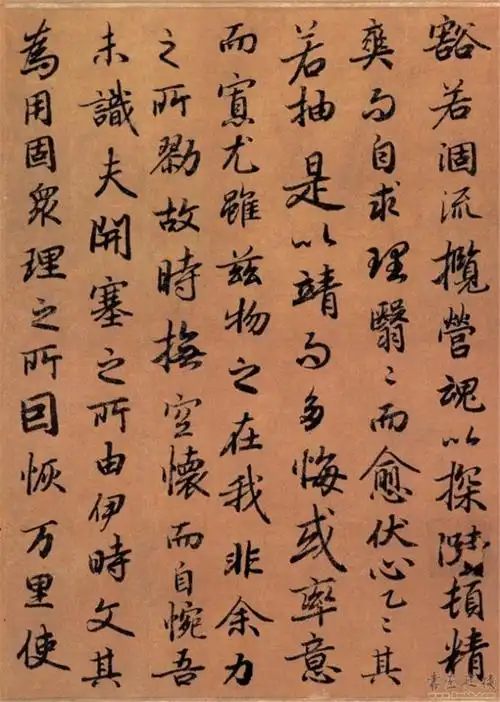 豁若涸流攬營魂以探賾頓精
爽而自求理翳〻而愈伏心乙〻其
若抽是以靖而多悔或率意
而寡尤雖茲物之在我非余力
之所勠故時撫空懷而自惋吾
未識夫開塞之所由伊時文其
為用固眾理之所因恢万里使